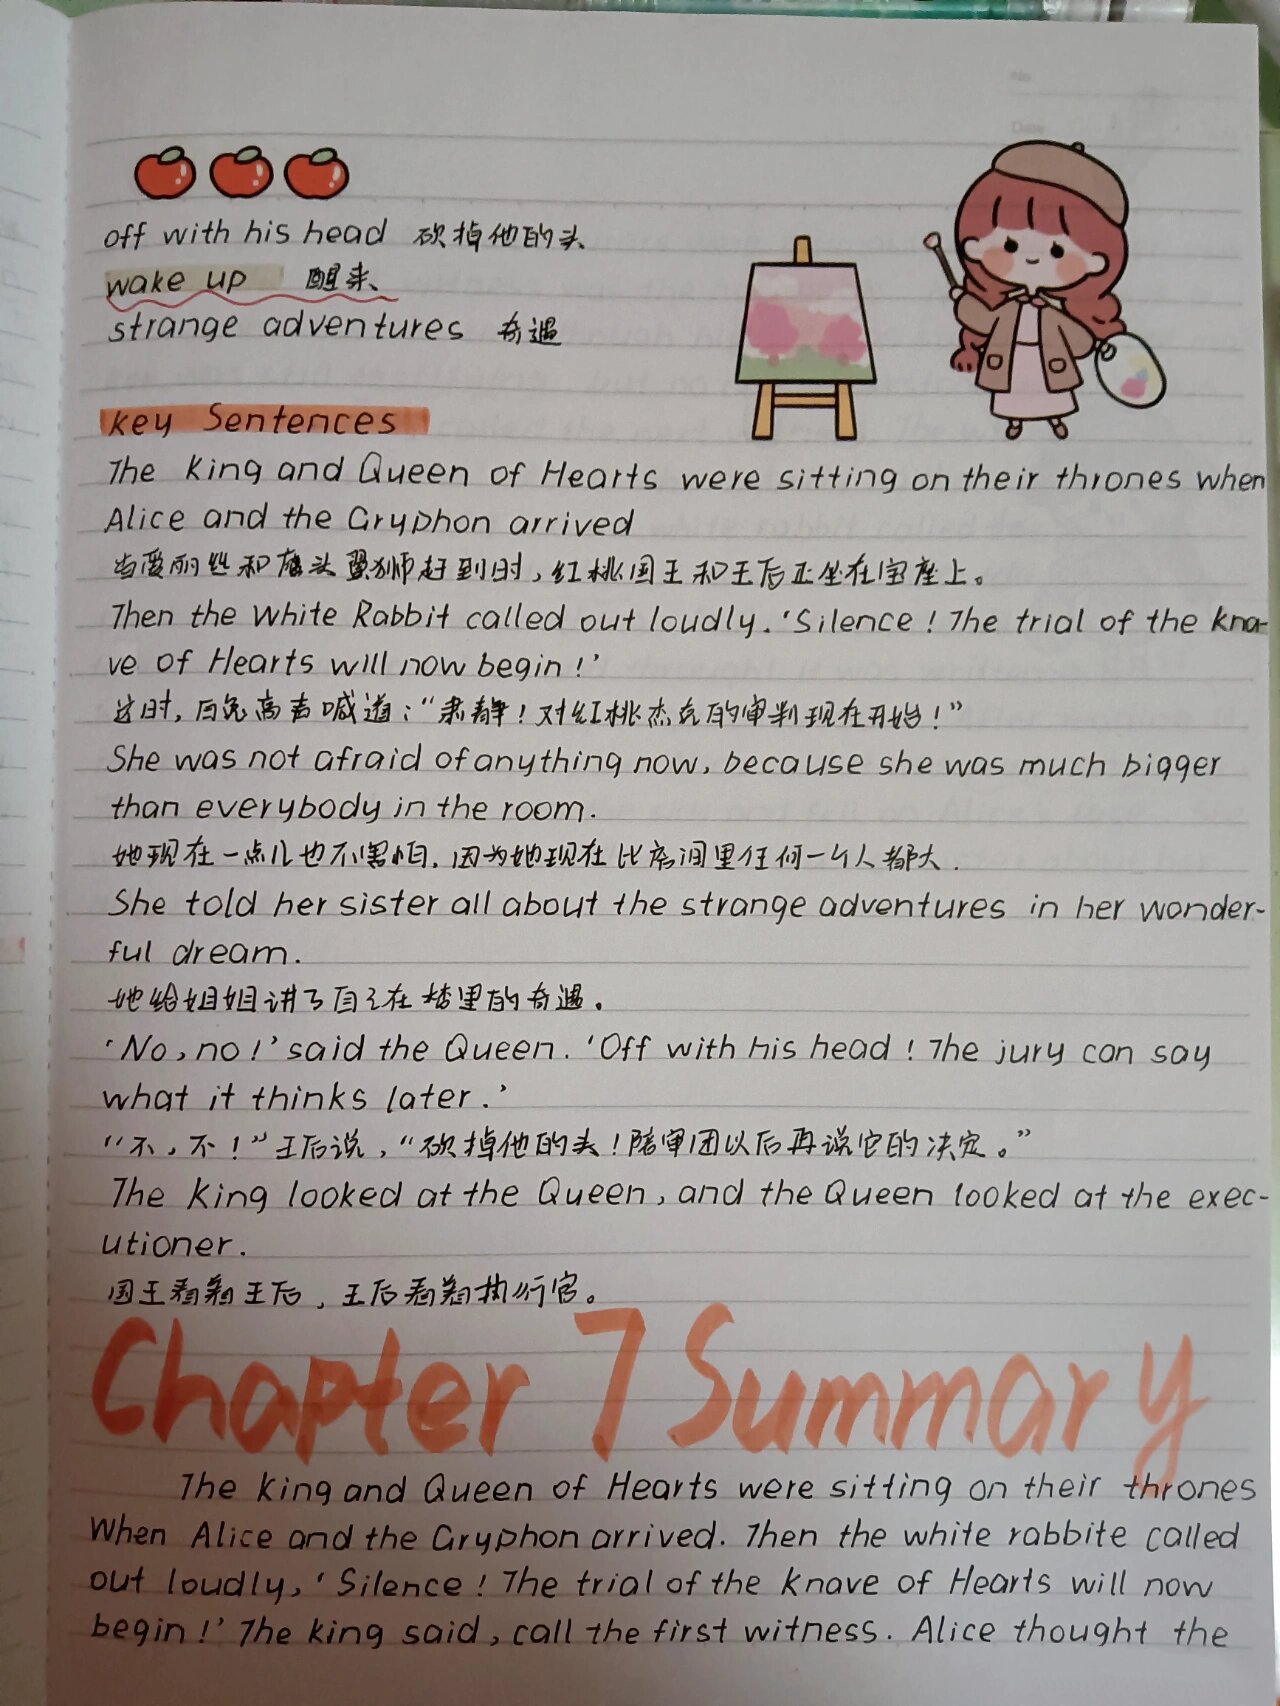 off with his head 砍掉他的头
wake up 醒来
strange adventures 奇遇
key Sentences
The King and Queen of Hearts were sitting on their thrones when
Alice and the Gryphon arrived
当爱丽丝和鹰头翼狮赶到时，红桃国王和王后正坐在宝座上。
Then the White Rabbit called out loudly. ‘Silence! The trial of the kna-
ve of Hearts will now begin!’
这时，白兔高声喊道：“肃静！对红桃杰克的审判现在开始！”
She was not afraid of anything now, because she was much bigger
than everybody in the room.
她现在一点儿也不害怕，因为她现在比房间里任何一个人都大.
She told her sister all about the strange adventures in her wonder-
ful dream.
她给姐姐讲了自己在梦里的奇遇。
‘No, no!’ said the Queen. ‘Off with his head! The jury can say
what it thinks later.’
“不，不！”王后说，“砍掉他的头！陪审团以后再说它的决定。”
The King looked at the Queen, and the Queen looked at the exec-
utioner.
国王看着王后，王后看着执行官。
Chapter 7 Summary
The king and Queen of Hearts were sitting on their thrones
When Alice and the Gryphon arrived. Then the white rabbite called
out loudly, ‘Silence! The trial of the Knave of Hearts will now
begin!’ The king said, call the first witness. Alice thought the